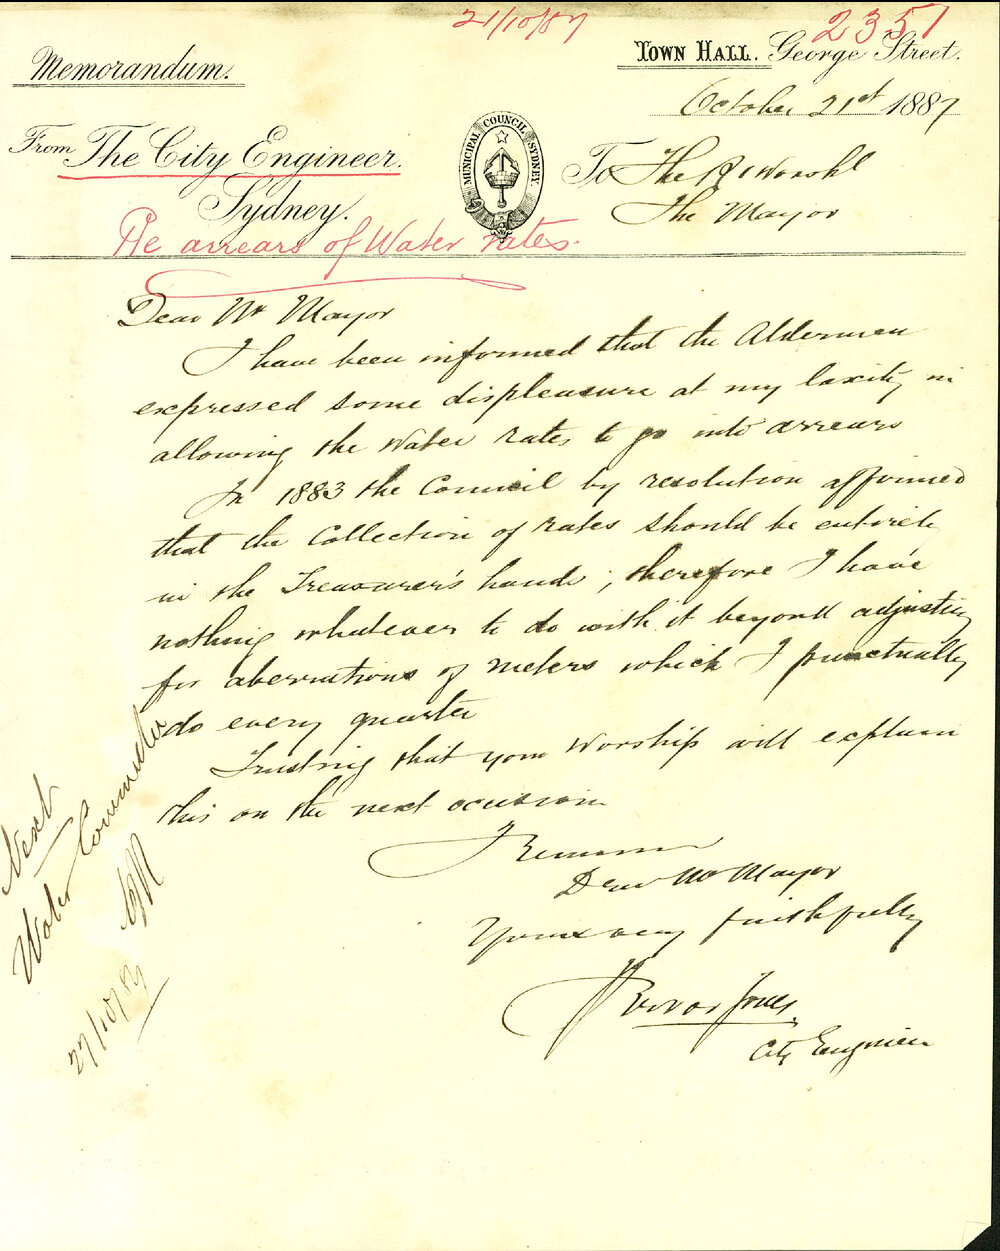 21/10/87
2351
Memorandum.
TOWN HALL. George Street.
October 21st 1887
From The City Engineer.
Sydney.
MUNICIPAL COUNCIL SYDNEY.
To The Rt Worshl
The Mayor
Re arrears of Water rates.
Dear Mr Mayor
I have been informed that the Aldermen
expressed some displeasure at my laxity in
allowing the Water rates to go into arrears
In 1883 the Council by resolution affirmed
that the Collection of rates should be entirely
in the Treasurer's hands; therefore I have
nothing whatever to do with it beyond adjusting
for aberrations of meters which I punctually
do every quarter
Trusting that your Worship will explain
this on the next occasion
I Remain
Dear Mr Mayor
Yours very faithfully
Trevor Jones
City Engineer
Next
Water Committee
27/10/87